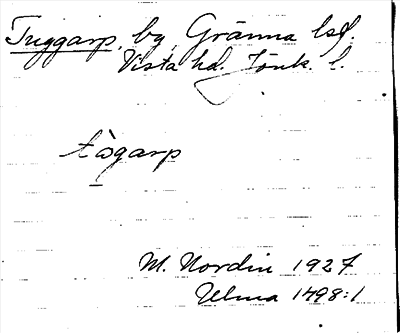 Tuggarp, by, Gränna lsf.
Vista hd. Jönk. l.
tògarp
M. Nordin 1927
Ulma 1498:1